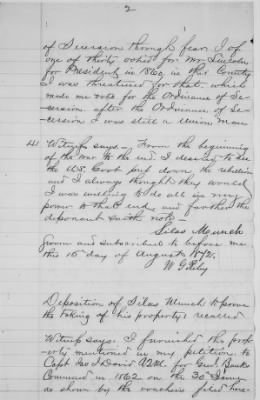 2
of Secession through fear. I of
one of thirty voted for Mr Lincoln
for President in 1860 in this County
I was threatened for that. which
made me vote for the Ordinance of Se-
cession. after the Ordinance of Se-
cession I was still a Union man
4 Witness says - From the beginning
of the war to the end. I desired to see
the U.S. Govt put down the rebellion
and I always thought they would
I was willing to do all in my
power to that end, and further the
deponent saith not.
Silas Munch
Sworn and subscribed to before me
this 15 day of August 1872.
W G Riley
Deposition of Silas Munch to prove
the taking of his property recalled
Witness says. I furnished the prop-
erty mentioned in my petition to
Capt Jas I David AQM. for Genl Banks
Command in 1862 on the 30 June
as shown by the vouchers filed here